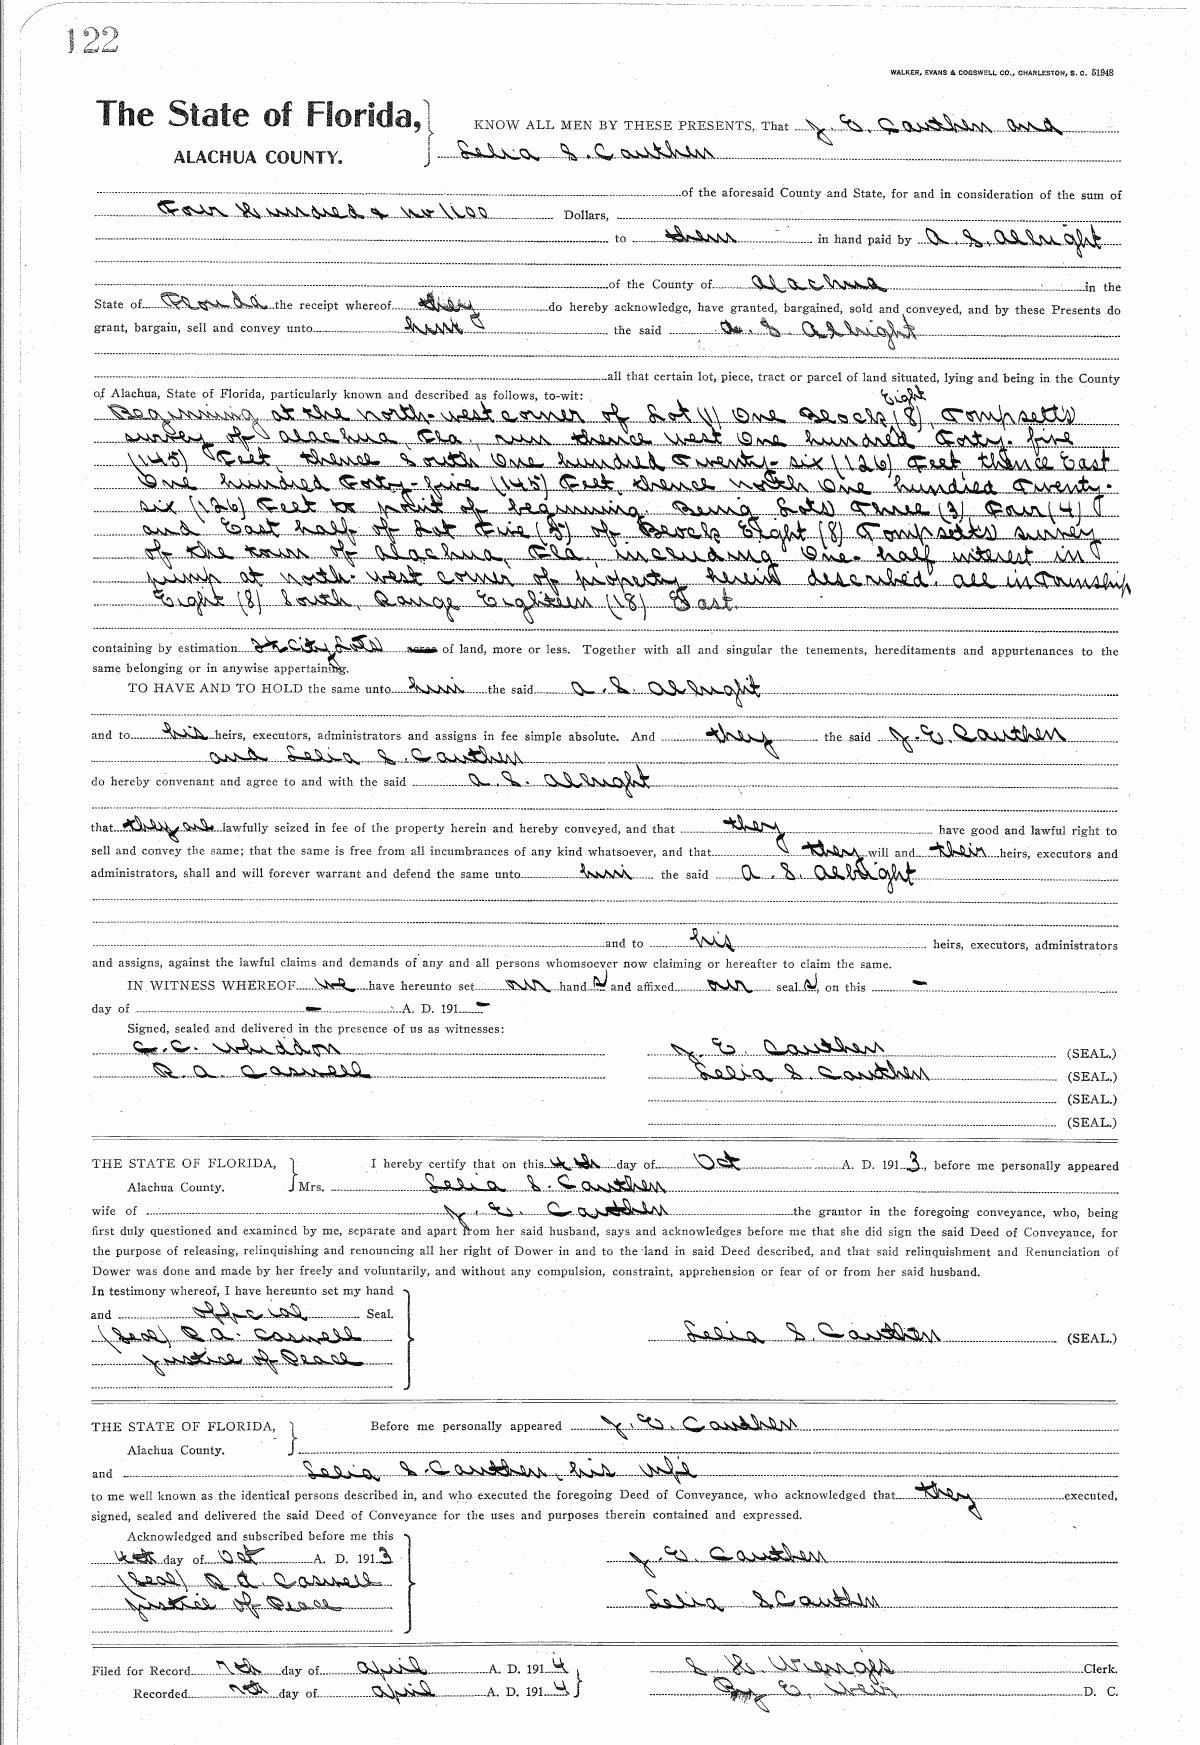 122
WALKER, EVANS & COGSWELL CO., CHARLESTON, S. C. 51948
The State of Florida, KNOW ALL MEN BY THESE PRESENTS, That J. E. Cauthen and
ALACHUA COUNTY. Lelia S. Cauthen
of the aforesaid County and State, for and in consideration of the sum of
Four Hundred & no/100 Dollars,
to them in hand paid by A. S. Albright
of the County of Alachua in the
State of Florida the receipt whereof they do hereby acknowledge, have granted, bargained, sold and conveyed, and by these Presents do
grant, bargain, sell and convey unto him the said A. S. Albright
all that certain lot, piece, tract or parcel of land situated, lying and being in the County
of Alachua, State of Florida, particularly known and described as follows, to-wit:
Beginning at the north-west corner of Lot (1) One Block Eight (8), Tompsetts
survey of Alachua Fla, run thence west One hundred Forty-five
(145) Feet, thence South One hundred Twenty-six (126) Feet thence East
One hundred Forty-five (145) Feet, thence north One hundred Twenty-
six (126) Feet to point of beginning. Being Lots Three (3) Four (4)
and East half of Lot Five (5) of Block Eight (8) Tompsetts survey
of the town of Alachua, Fla, including One-half interest in
pump at north-west corner of property herein described. all in Township
Eight (8) South, Range Eighteen (18) East.
containing by estimation City Lots acres of land, more or less. Together with all and singular the tenements, hereditaments and appurtenances to the
same belonging or in anywise appertaining.
TO HAVE AND TO HOLD the same unto him the said A. S. Albright
and to his heirs, executors, administrators and assigns in fee simple absolute. And they the said J. E. Cauthen
and Lelia S. Cauthen
do hereby convenant and agree to and with the said A. S. Albright
that they are lawfully seized in fee of the property herein and hereby conveyed, and that they have good and lawful right to
sell and convey the same; that the same is free from all incumbrances of any kind whatsoever, and that they will and their heirs, executors and
administrators, shall and will forever warrant and defend the same unto him the said A. S. Albright
and to his heirs, executors, administrators
and assigns, against the lawful claims and demands of any and all persons whomsoever now claiming or hereafter to claim the same.
IN WITNESS WHEREOF we have hereunto set our hand s and affixed our seal s, on this -
day of - A. D. 191 -
Signed, sealed and delivered in the presence of us as witnesses:
C. C. Whiddon J. E. Cauthen (SEAL.)
R. A. Caswell Lelia S. Cauthen (SEAL.)
(SEAL.)
(SEAL.)
THE STATE OF FLORIDA, I hereby certify that on this 4th day of Oct A. D. 1913, before me personally appeared
Alachua County. Mrs. Lelia S. Cauthen
wife of J. E. Cauthen the grantor in the foregoing conveyance, who, being
first duly questioned and examined by me, separate and apart from her said husband, says and acknowledges before me that she did sign the said Deed of Conveyance, for
the purpose of releasing, relinquishing and renouncing all her right of Dower in and to the land in said Deed described, and that said relinquishment and Renunciation of
Dower was done and made by her freely and voluntarily, and without any compulsion, constraint, apprehension or fear of or from her said husband.
In testimony whereof, I have hereunto set my hand
and official Seal.
(Seal) R A. Caswell Lelia S Cauthen (SEAL.)
Justice of Peace
THE STATE OF FLORIDA, Before me personally appeared J. E. Cauthen
Alachua County.
and Lelia S. Cauthen, his wife
to me well known as the identical persons described in, and who executed the foregoing Deed of Conveyance, who acknowledged that they executed,
signed, sealed and delivered the said Deed of Conveyance for the uses and purposes therein contained and expressed.
Acknowledged and subscribed before me this
4th day of Oct A. D. 1913 J. E. Cauthen
(Seal) R A. Caswell
Justice of Peace Lelia S Cauthen
Filed for Record 7th day of April A. D. 1914 S. H. Wienges Clerk.
Recorded 7th day of April A. D. 1914 By E. Weir D. C.